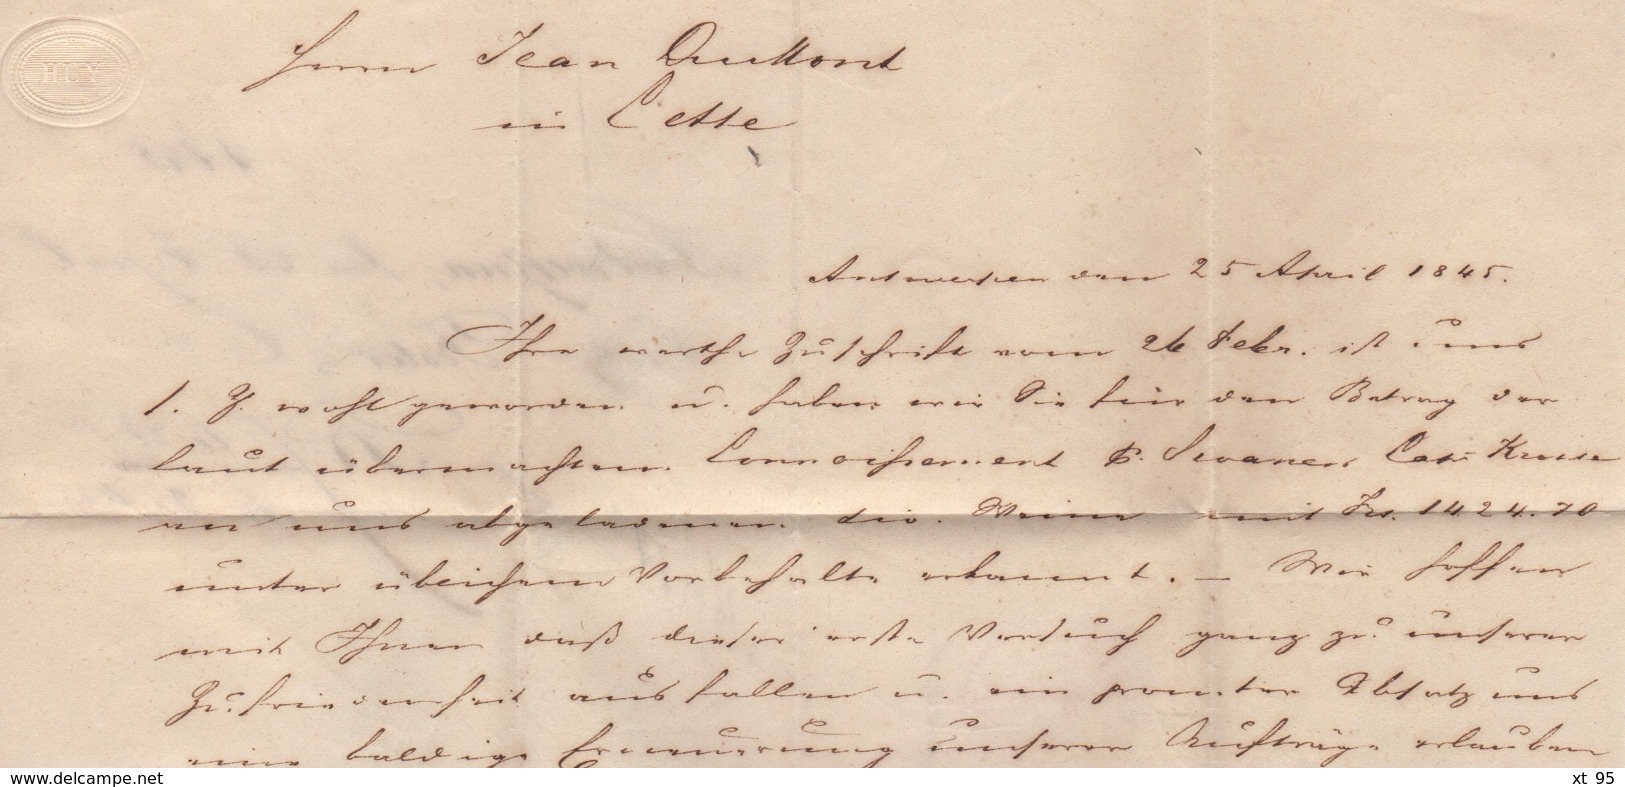 HUY
Herrn Jean Dumont
in Cette
Antwerpen den 25 April 1845.
Ihre werthe Zuschrift vom 26 Febr. ist uns
s. Z. wohl geworden u. haben wir Sie für den Betrag der
laut übermachten Connoissement p. Swanen Capt Kruse
an uns abgeladenen div. Weine mit Frs. 1424.70
unter üblichem Vorbehalte erkannt. — Wir hoffen
mit Ihnen daß dieser erste Versuch ganz zu unserer
Zufriedenheit ausfallen u. ein promter Absatz uns
eine baldige Erneuerung unserer Aufträge erlauben
www.delcampe.net
xt 95